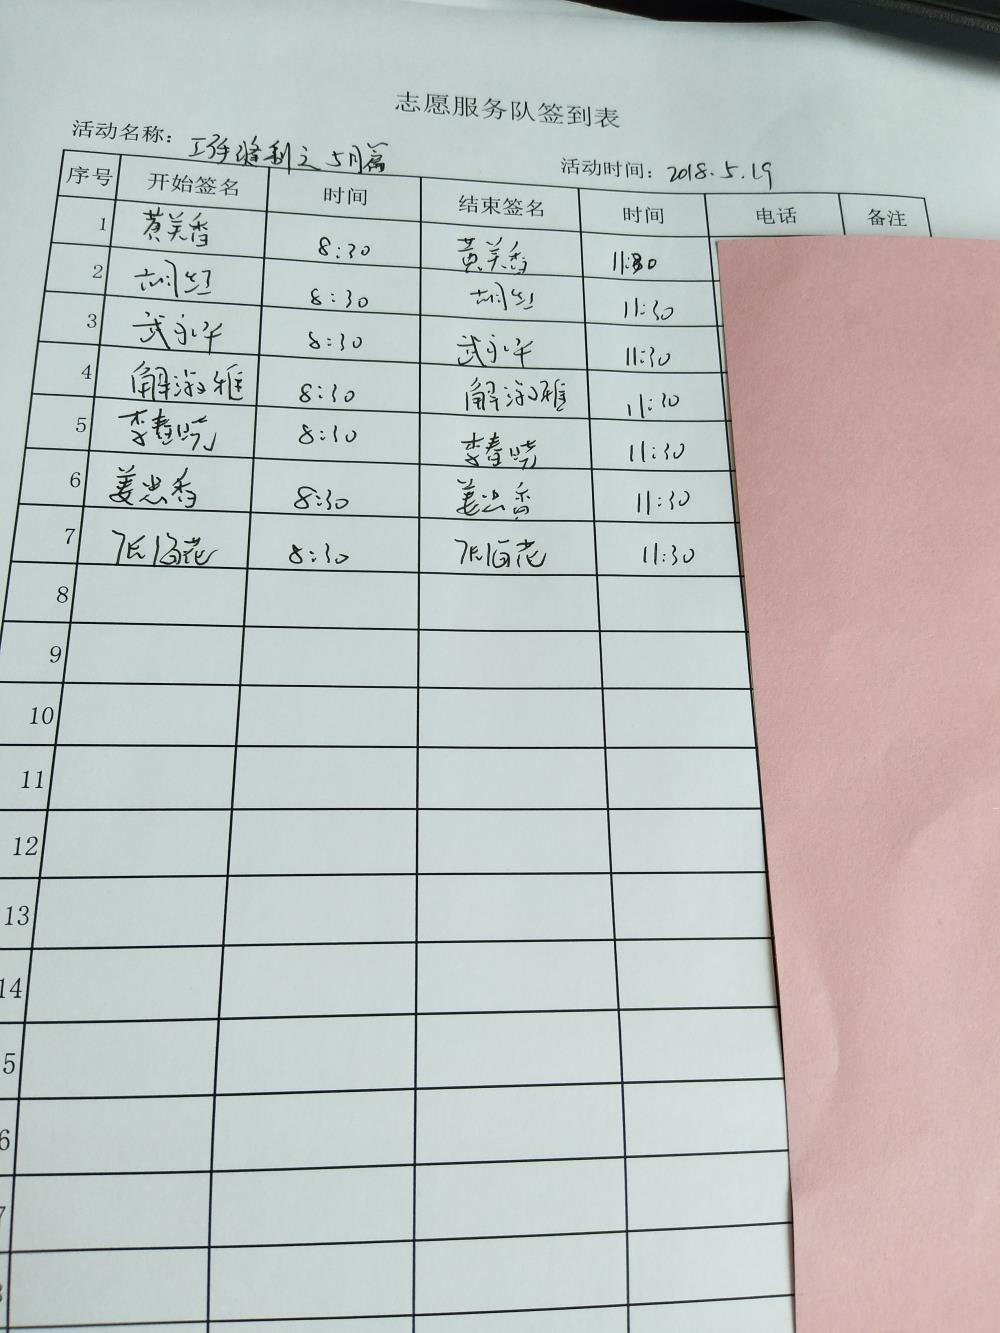 志愿服务队签到表
活动名称: 巧手缝制之5月篇 活动时间: 2018.5.19
序号 开始签名 时间 结束签名 时间 电话 备注
1 黄美香 8:30 黄美香 11:30
2 胡红 8:30 胡红 11:30
3 武永华 8:30 武永华 11:30
4 解淑雅 8:30 解淑雅 11:30
5 李春晓 8:30 李春晓 11:30
6 姜忠香 8:30 姜忠香 11:30
7 张伯花 8:30 张伯花 11:30
8
9
10
11
12
13
14
5
6
7